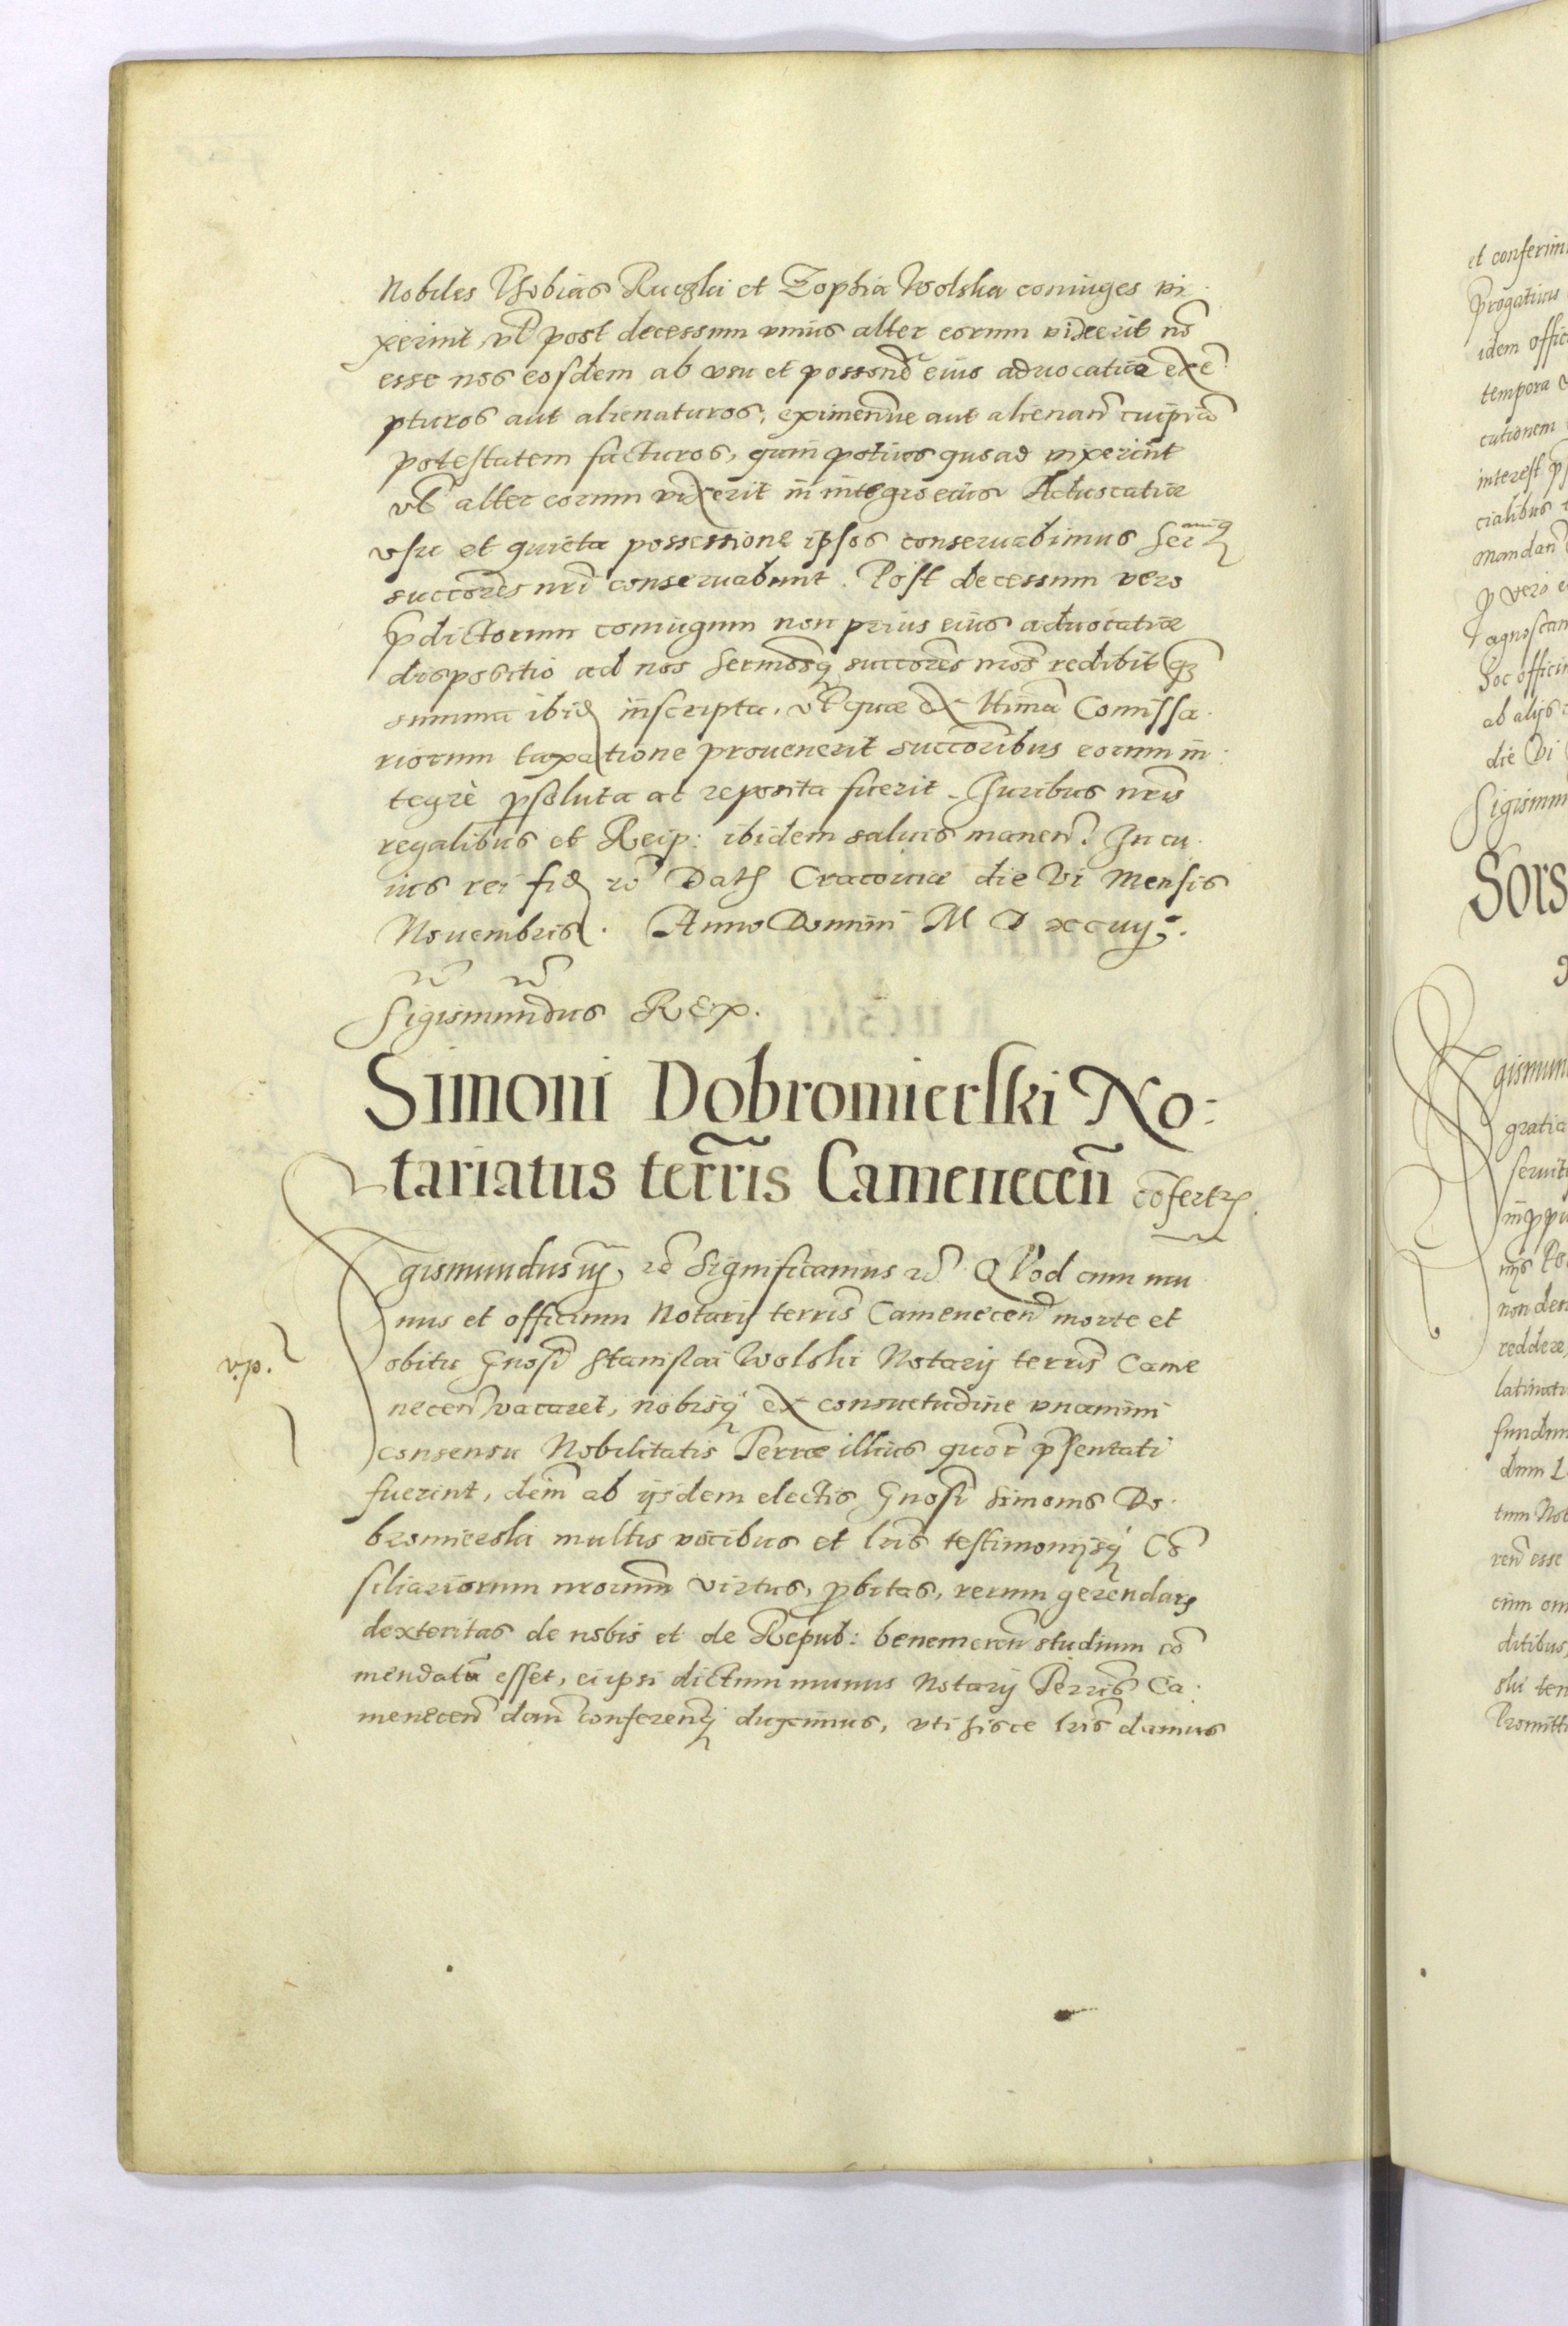 Nobiles Thobias Ruczki et Zophia Wolska coniuges vi
xerint, vl post decessum vnius alter eorum vixerit nō
esse nos eosdem ab vsu et possone eius aduocatiæ exē
pturos aut alienaturos, eximendive aut alienan cuipiā
potestatem facturos, quin potius quoad vixerint
vl alter eorum vixerit in integro eius Aduocatiæ
vsu et quieta possessione ipsos conseruabimus Ser
succores nri conseruabunt. Post decessum vero
pdictorum coniugum non prius eius aduocatiæ
dispositio ad nos sermosq succores nros redibit q
summa ibid inscripta, vl quæ ex ltima Comissa
riorum taxatione prouenerit succoribus eorum in
tegrè psoluta ac reposita fuerit. Juribus nris
regalibus et Reip: ibidem saluis manen. In cu
ius rei fid Dat Cracouiæ die Vi Mensis
Nouembris. Anno Domini M D xcvij.
Sigismundus Rex.
Simoni Dobromierski No:
tariatus terris Camenecen confertr.
gismundus iij, Significamus Quod cum mu
nus et officium Notarij terris Camenecen morte et
v.p.
obitu Gnosi Stanislai Wolski Notarij terris Came
necen vacaret, nobisq ex consuetudine vnanimi
consensu Nobilitatis Terræ illius quor psentati
fuerint, dem ab ijsdem electis Gnosi Simonis Do
bromierski multis vocibus et lris testimonijsq Cō
siliariorum nrorum virtus, pbitas, rerum gerendar
dexteritas de nobis et de Repub: benemeren studium cō
mendatū esset, ei ipsi dictum munus Notarij Terris Ca
menecen dan conferenq duximus, vti hisce lris damus
et conferim
progatiuis
idem offic
tempora
cutionem
interest
cialibus
mandan
vero
agnoscan
hoc offici
ab alijs
die Vi
Sigismun
Sors
gismun
gratia
seruit
non den
reddere,
latinat
fundum
dum
tum Not
ren esse
cum om
ditibus
ski ten
Promitti